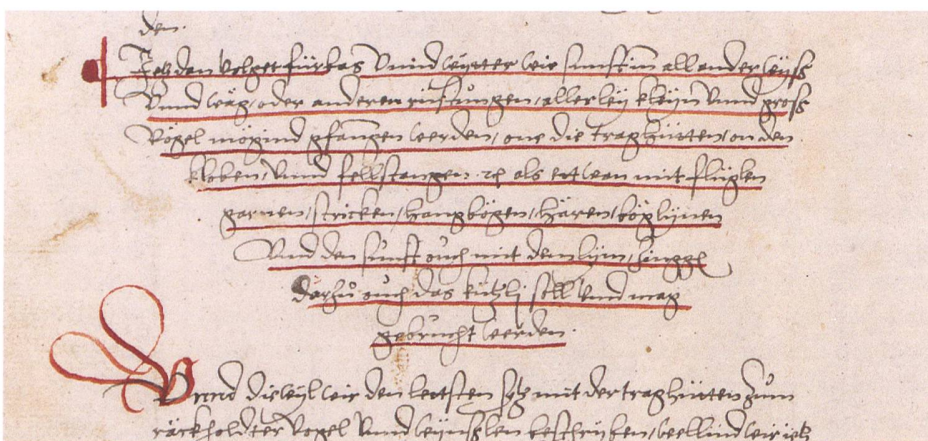 den.
Jetz den volget fürbas unnd wyter wie sunst in all ander wyß
unnd wäg, oder anderen rüstungen, allerley kleyn unnd groß
Vögel mögind gfangen werden, one die traghütten, on den
kloben, unnd fellstangen rc als ettwan mit flüglen
garnen, stricken, hangbögen, hären, böglynen
Und den sunst ouch mit dem lym,
darzu ouch das kützlj soll unnd mag
gebrucht werden.
Unnd diewyl wir den letsten satz mit der traghütten zum
räckholdter vogel unnd beschryben, wellind wir jetz